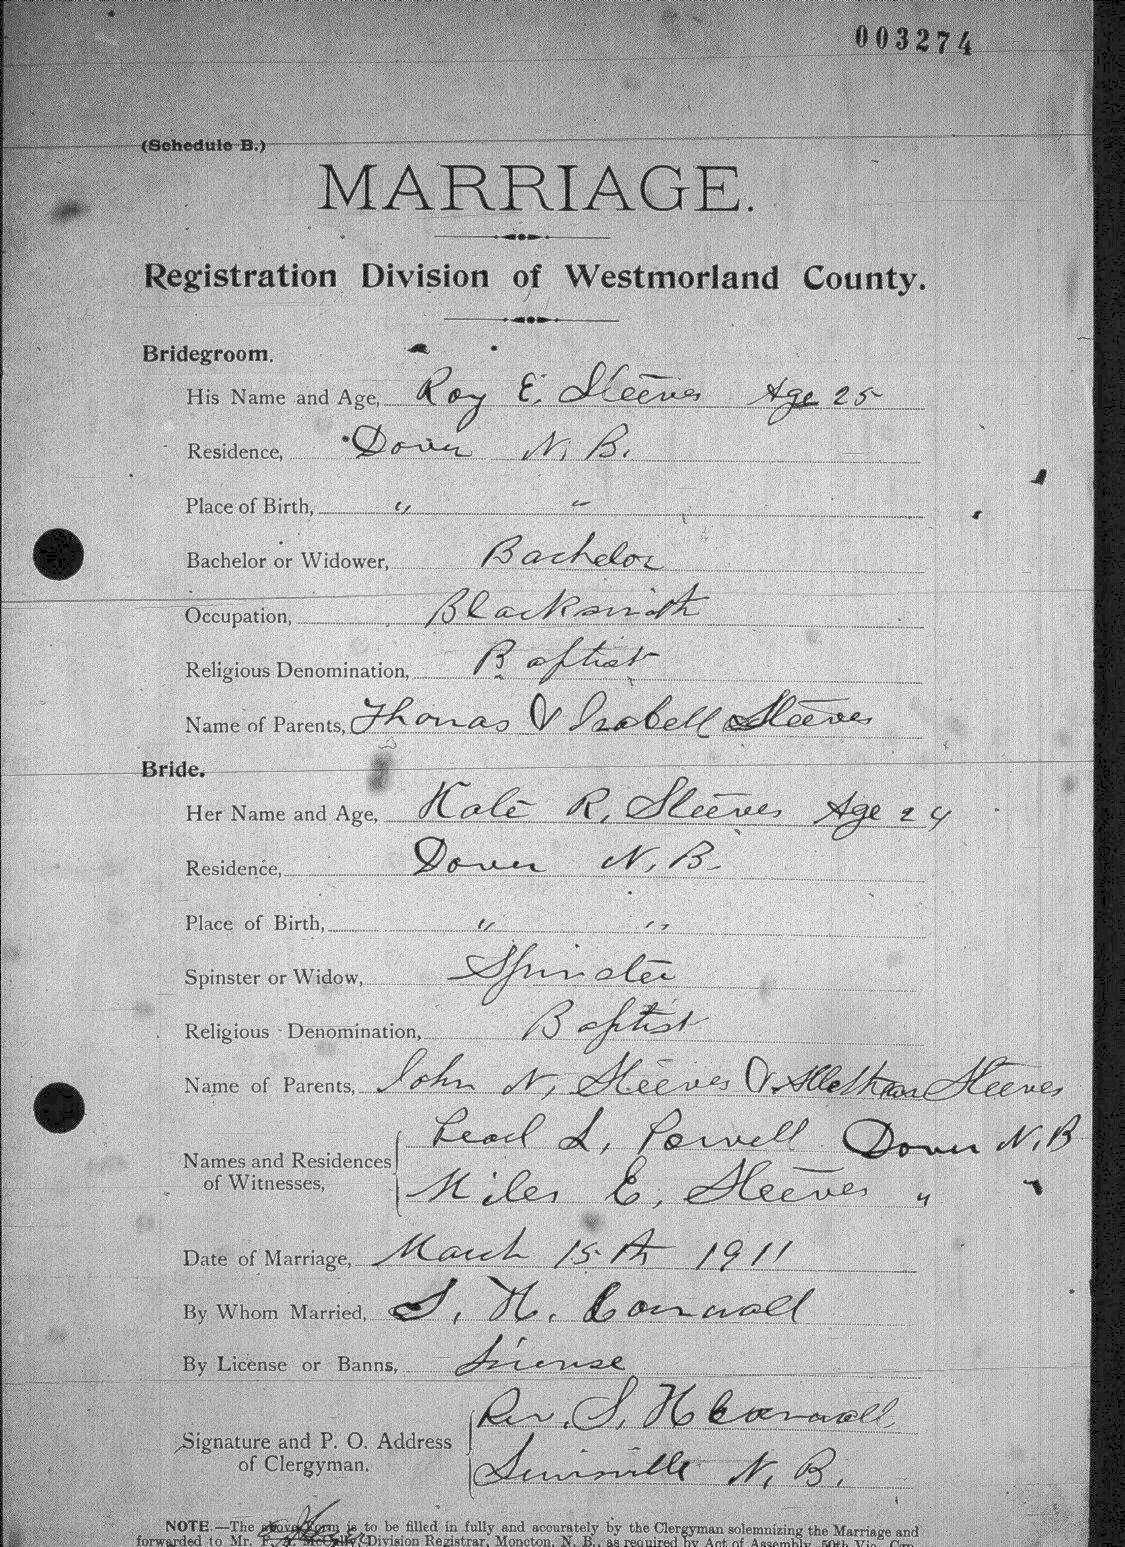 003274
(Schedule B.)
MARRIAGE.
Registration Division of Westmorland County.
Bridegroom.
His Name and Age, Roy E. Steeves Age 25
Residence, Dover N. B.
Place of Birth, " "
Bachelor or Widower, Bachelor
Occupation, Blacksmith
Religious Denomination, Baptist
Name of Parents, Thomas & Isabell Steeves
Bride.
Her Name and Age, Kate R. Steeves Age 24
Residence, Dover N. B.
Place of Birth, " "
Spinster or Widow, Spinster
Religious Denomination, Baptist
Name of Parents, John N. Steeves & Steeves
L. Powell Dover N. B
Names and Residences
of Witnesses,
Miles E. Steeves "
Date of Marriage, March 15th 1911
By Whom Married, S. H. Cornwall
By License or Banns, License
Rev. S. H Cornwall
Signature and P. O. Address
of Clergyman.
Lewisville N. B.
NOTE.—The above Form is to be filled in fully and accurately by the Clergyman solemnizing the Marriage and
forwarded to Mr. Division Registrar, Moncton, N. B., as required by Act of Assembly, 50th Vic.